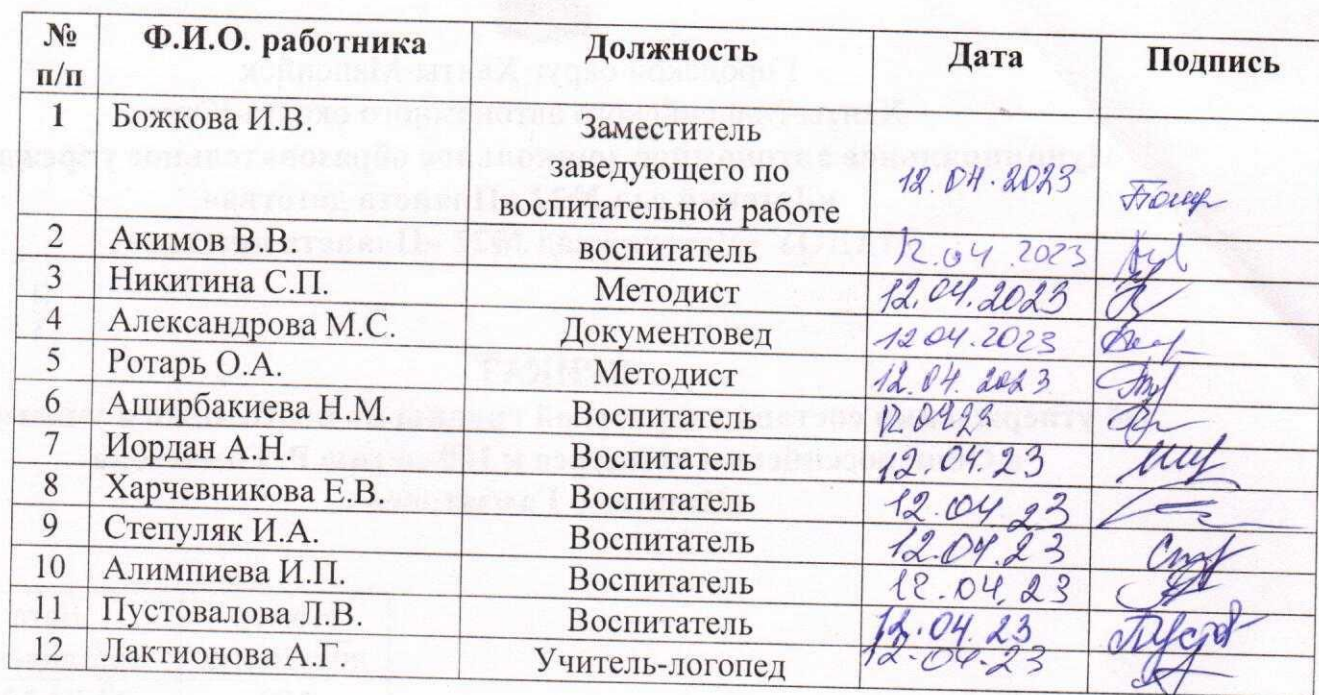 № п/п Ф.И.О. работника Должность Дата Подпись
1 Божкова И.В. Заместитель
заведующего по
воспитательной работе 12.04.2023
2 Акимов В.В. воспитатель 12.04.2023
3 Никитина С.П. Методист 12.04.2023
4 Александрова М.С. Документовед 12.04.2023
5 Ротарь О.А. Методист 12.04.2023
6 Аширбакиева Н.М. Воспитатель 12.04.23
7 Иордан А.Н. Воспитатель 12.04.23
8 Харчевникова Е.В. Воспитатель 12.04.23
9 Степуляк И.А. Воспитатель 12.04.23
10 Алимпиева И.П. Воспитатель 12.04.23
11 Пустовалова Л.В. Воспитатель 12.04.23
12 Лактионова А.Г. Учитель-логопед 12.04.23